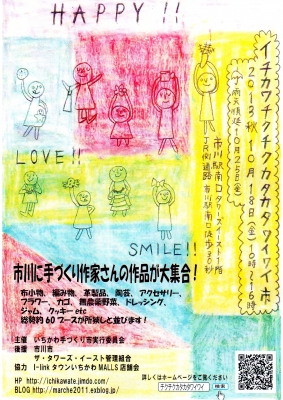 HAPPY !!
イチカワテヅクチカタカタワイワイ市
2013秋 10月18日(金)10時~16時
小雨天順延10月25日(金)
市川駅南口タワーズイースト1階
JR市川駅南口徒歩30秒
LOVE !!
SMILE!!
市川に手づくり作家さんの作品が大集合!
布小物、編み物、革製品、陶芸、アクセサリー、
フラワー、カゴ、無農薬野菜、ドレッシング、
ジャム、クッキー etc
総勢約60ブースが所狭しと並びます!
主催 いちかわ手づくり市実行委員会
後援 市川市
ザ・タワーズ・イースト管理組合
協力 I-linkタウンいちかわMALLS 店舗会
HP http://ichikawate.jimdo.com/
BLOG http://marche2011.exblog.jp/
詳しくはホームページをご覧ください
チクチクカタカタワイワイ 検索